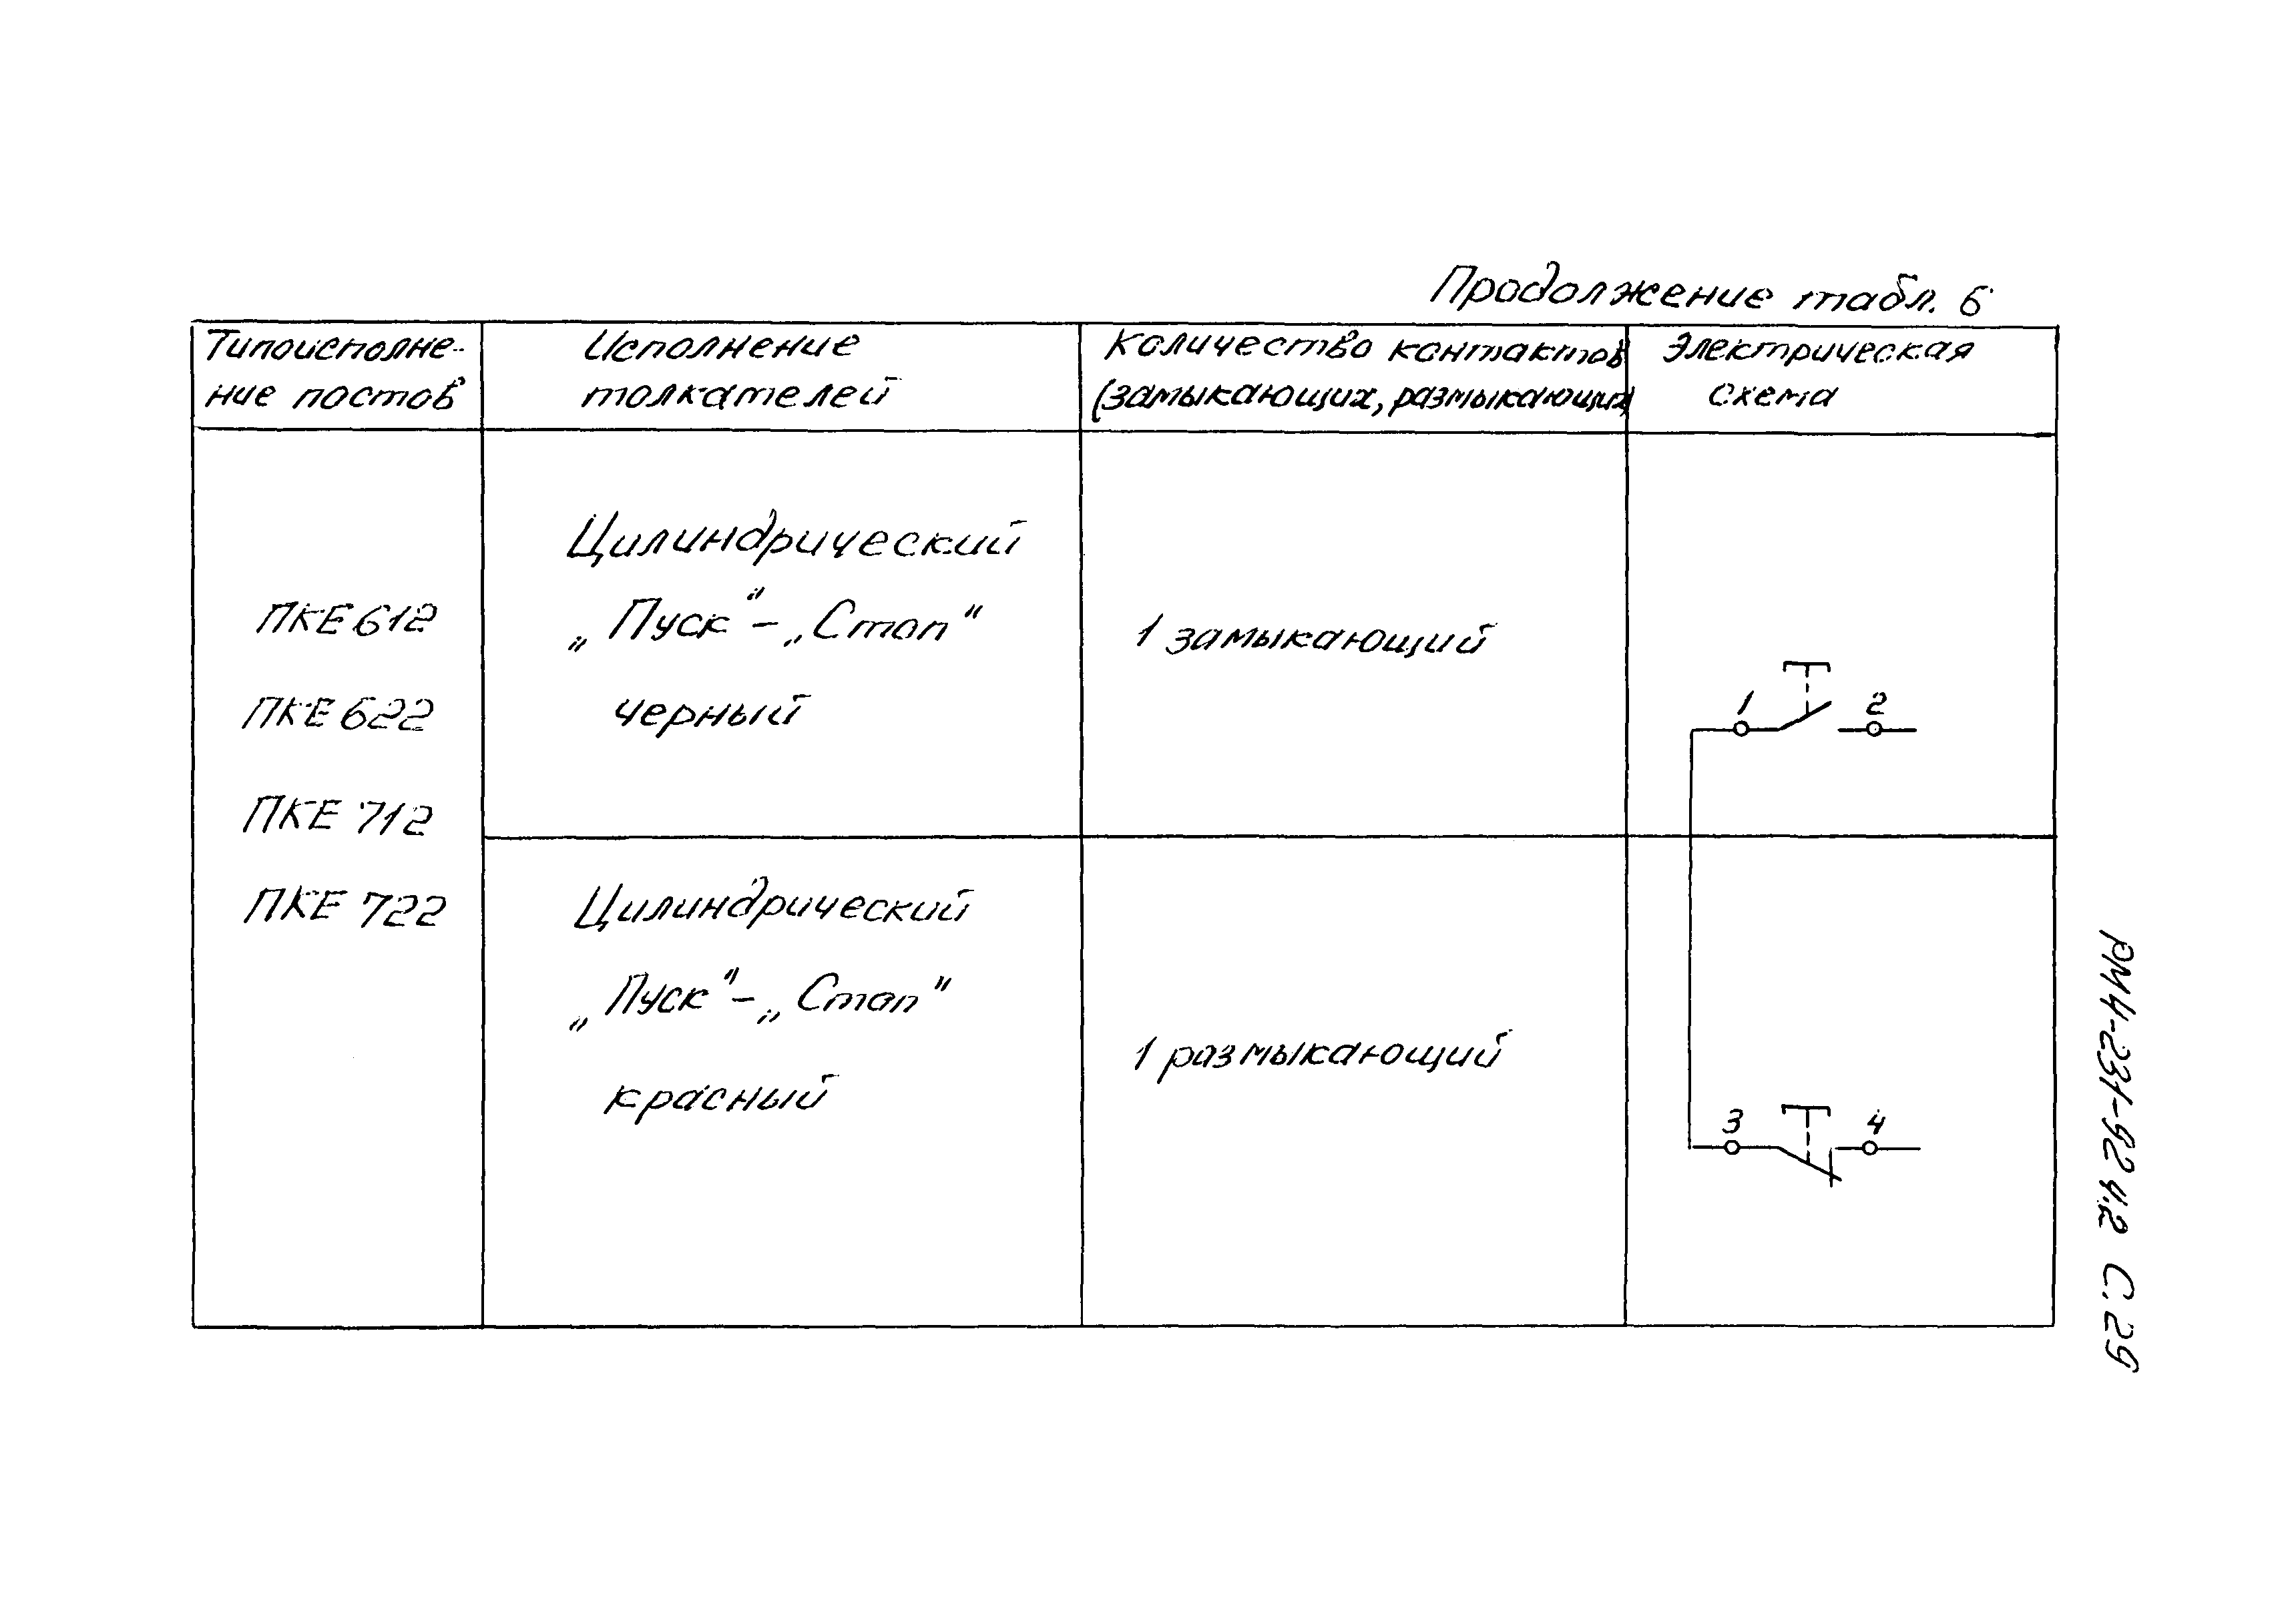 Продолжение табл. 6
Типоисполне-
ние постов
Исполнение
толкателей
Количество контактов
(замыкающих, размыкающих)
Электрическая
схема
ПКЕ 612
ПКЕ 622
ПКЕ 712
ПКЕ 722
Цилиндрический
„Пуск“ – „Стоп“
черный
1 замыкающий
1 2
Цилиндрический
„Пуск“ – „Стоп“
красный
1 размыкающий
3 4
РМ4-231-92 ч.2 С.29